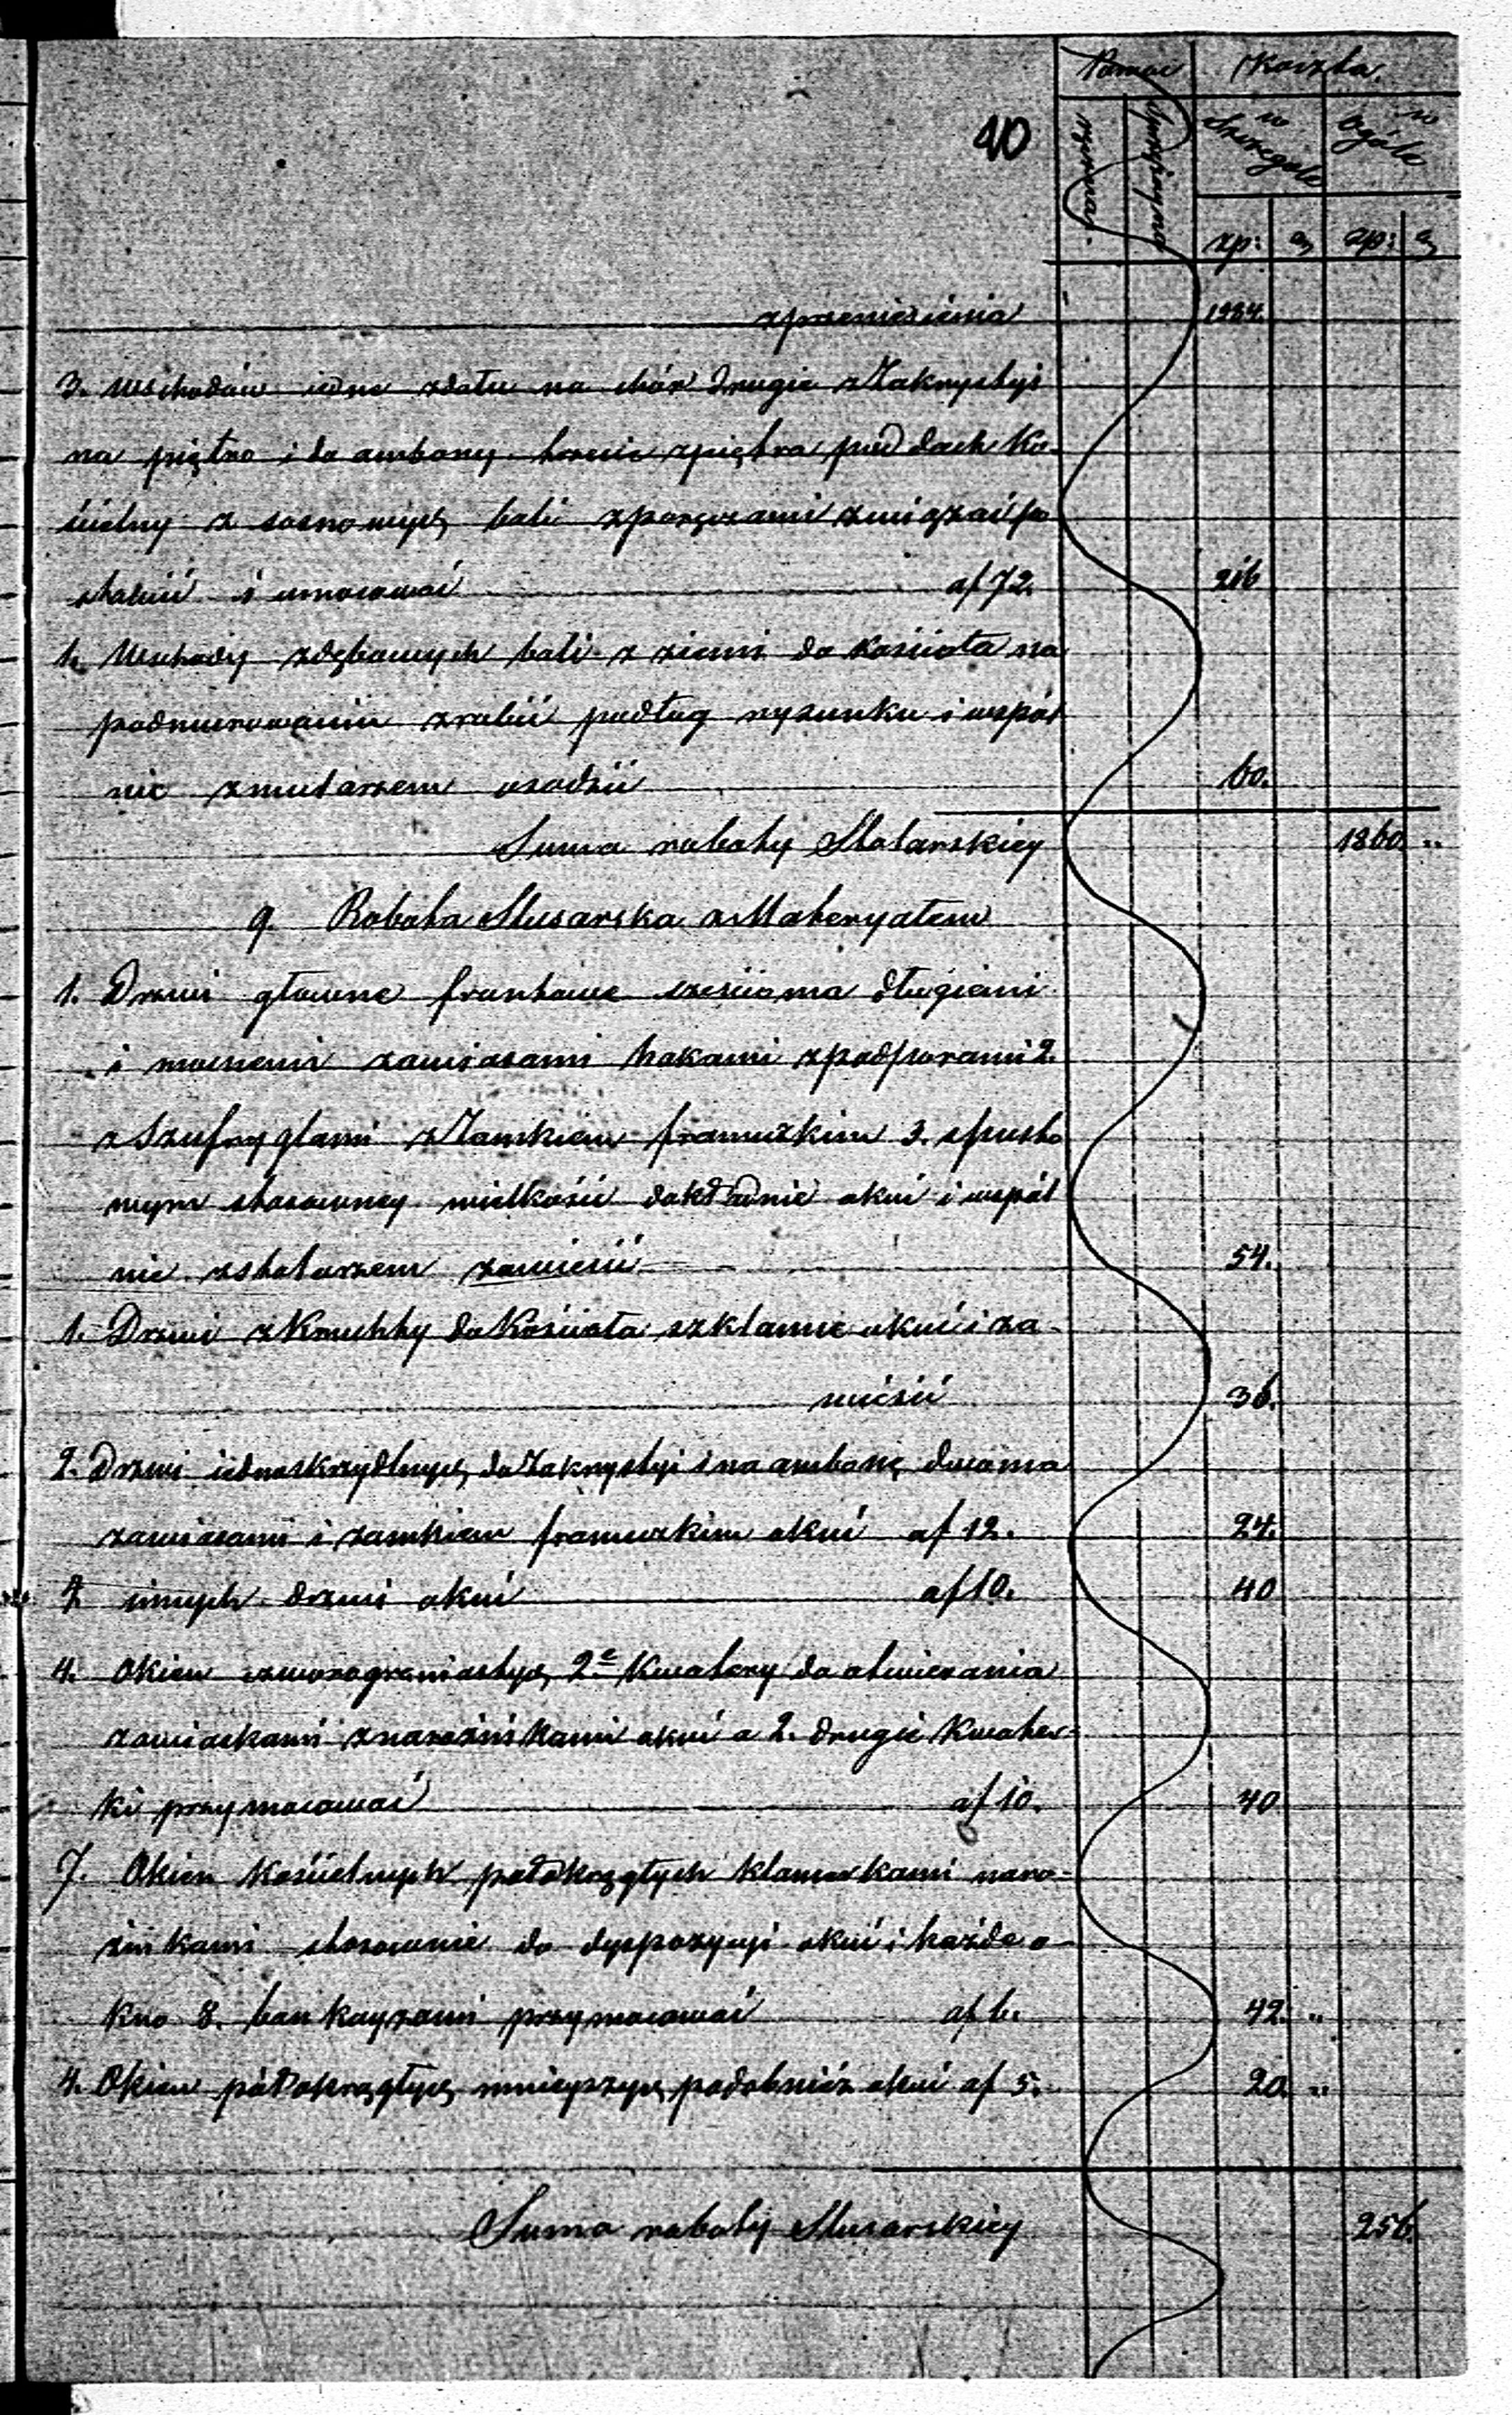 Pomoc Koszta
10 ryczna w Szczegole w Ogóle
zp: g zp: g
z przeniesienia 1984.
3. Wschodów iedne zdołu na chór drugie z Zakrystyi
na piętro i do ambony trzecie z piętra pod dach Ko-
ścielny z sosnowych bali z poręczami związać po
stawić i umocować af 72. 216
1. Wschody z dębowych bali z ziemi do kościoła na
podmurowaniu zrobić podług rysunku i wspól
nie z mularzem osadzić 60.
Suma roboty Stolarskiey 1860. "
9. Robota Slusarska z Materyałem
1. Drzwi główne frontowe sześcioma długiemi
i mocnemi zawiasami hakami z podporami 2.
z Szufryglami z Zamkiem francuzkim 3. spusto
wym stosowney wielkości dokładnie okuć i wspól
nie z stolarzem zawiesić 54.
1. Drzwi z Kruchty do Kościoła szklanne okuć i za-
wiesić 36.
2. Drzwi iednoskrzydlnych do Zakrystyi i na ambonę dwoma
zawiasami i zamkiem francuzkim okuć af 12. 24.
4 innych drzwi okuć af 10. 40
4. Okien czworograniastych 2e Kwatery do otwierania
zawiaskami z narożnikami okuć a 2. drugie Kwater-
ki przymocować af 10. 40
7. Okien kościelnych półokrągłych klamerkami naro-
żnikami stosownie do dyspozycyi okuć i każde o-
kno 8. bankayzami przymocować af 6. 42. "
4. Okien półokrągłych mnieyszych podobnież okuć af 5. 20. "
Suma roboty Slusarskiey 256.